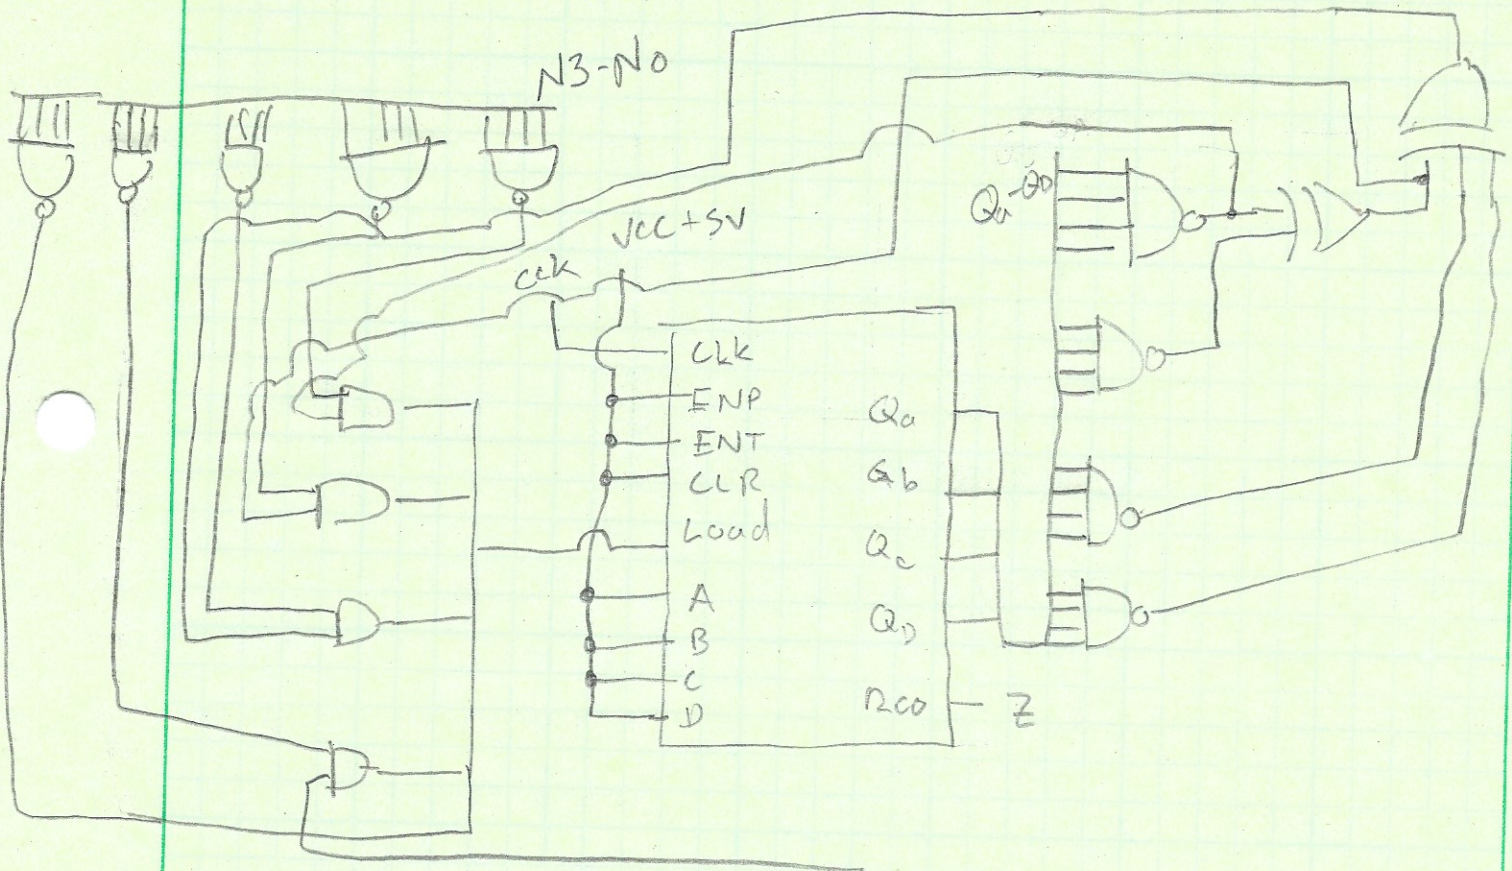 N3-N0
Qa-QD
VCC +5V
CLK
CLK
ENP
ENT
CLR
Load
A
B
C
D
Qa
Qb
Qc
QD
RCO
Z